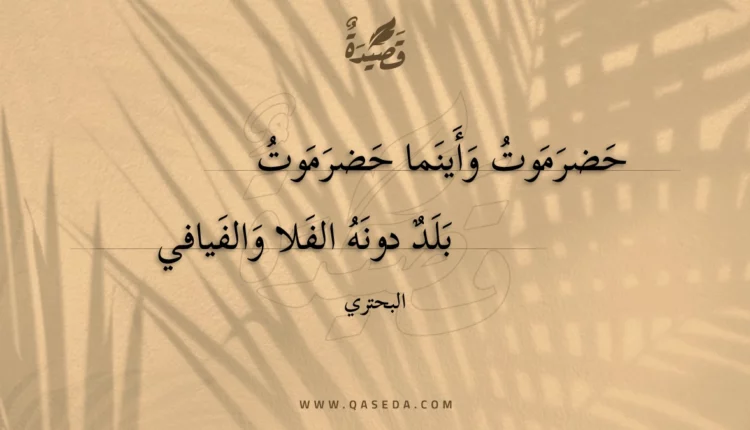 قَصِيْدَةٌ
حَضرَمَوتُ وَأَينَما حَضرَمَوتُ
بَلَدٌ دونَهُ الفَلا وَالفَيافي
البحتري
WWW.QASEDA.COM